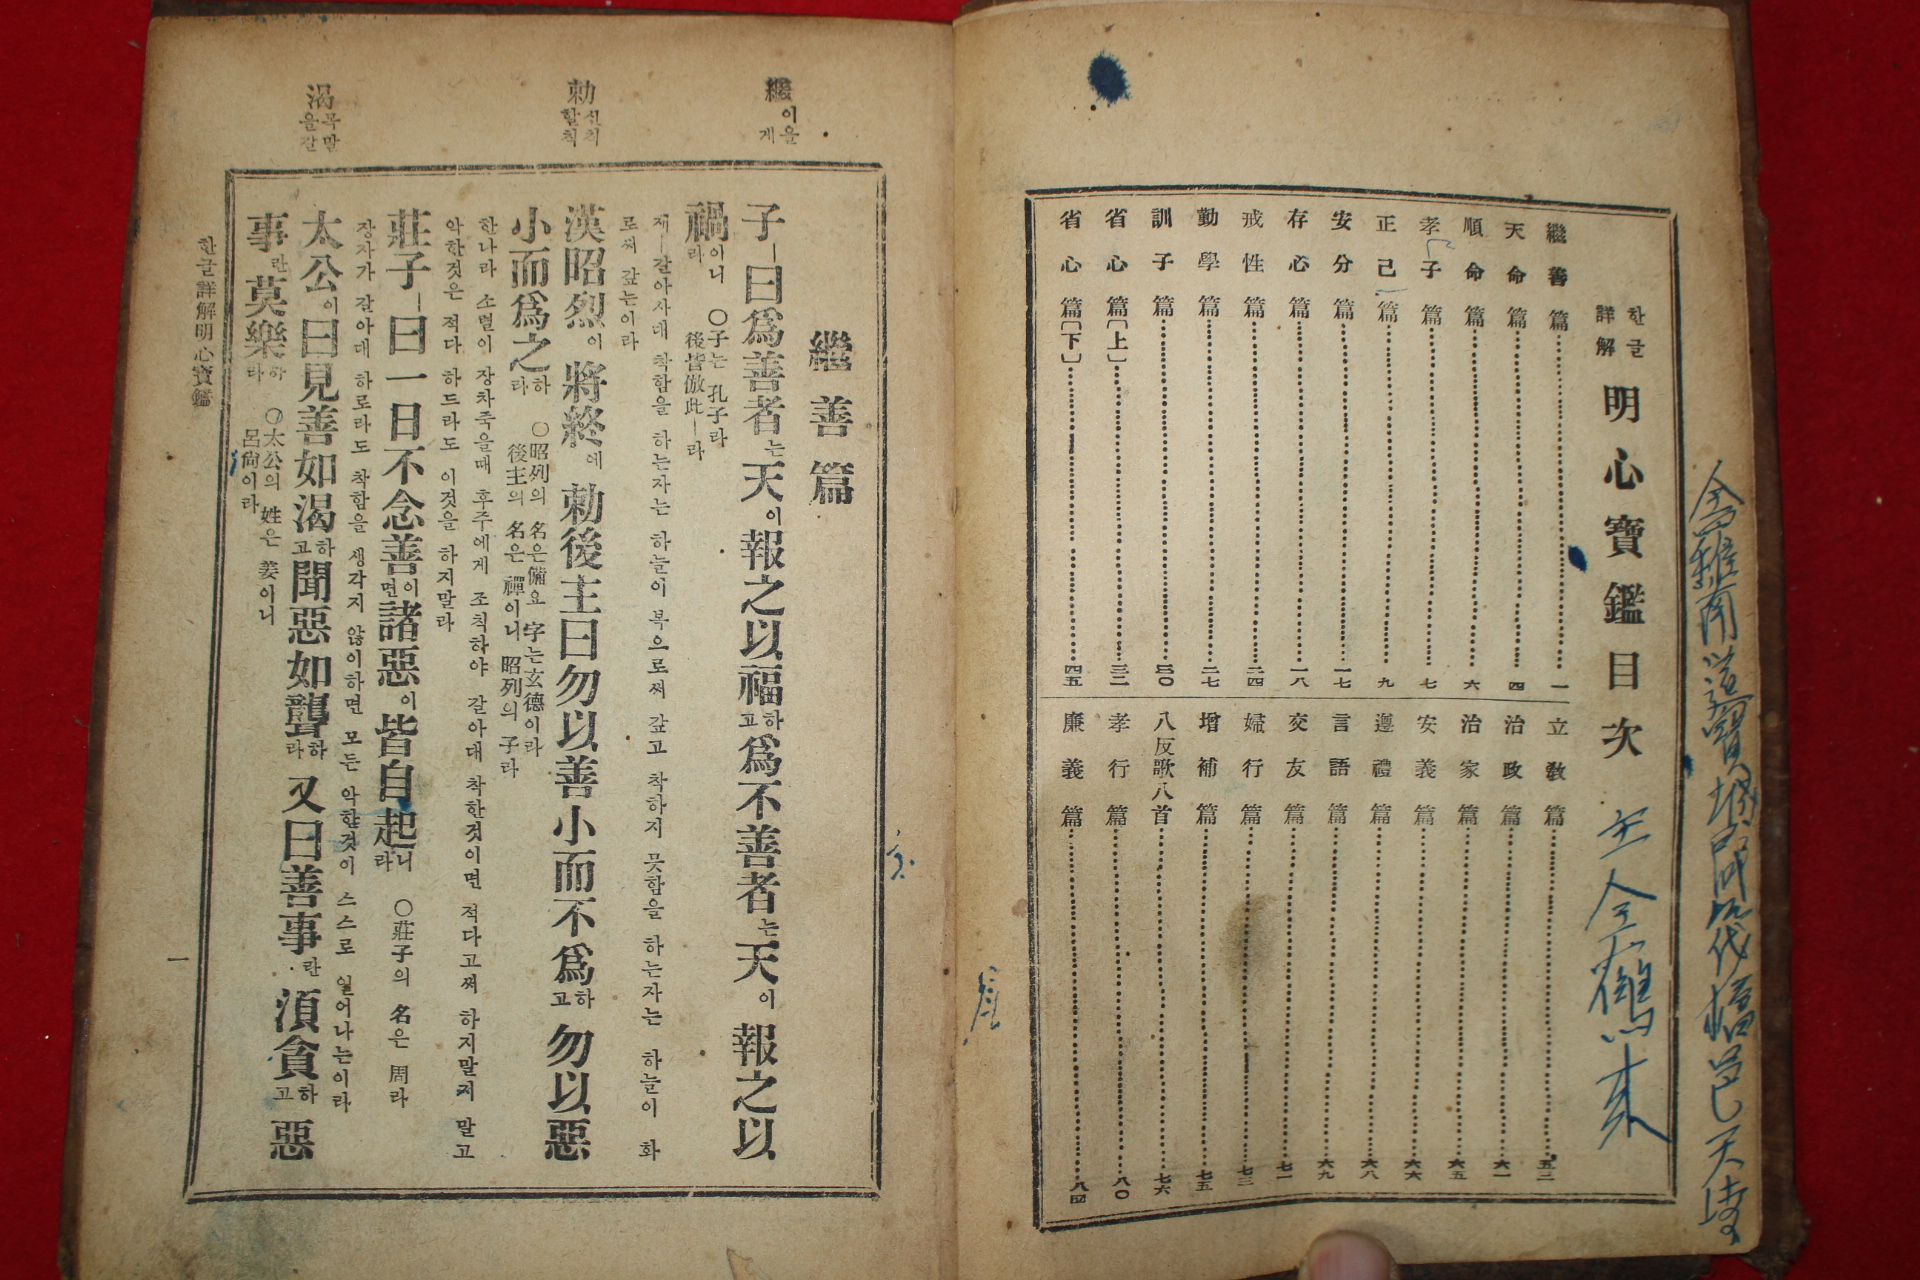 한글
詳解
明心寶鑑目次
繼善篇 一
天命篇 四
順命篇 六
孝子篇 七
正己篇 九
安分篇 一七
存心篇 一八
戒性篇 二四
勤學篇 二七
訓子篇 三〇
省心篇(上) 三二
省心篇(下) 四五
立敎篇 五二
治政篇 六一
治家篇 六五
安義篇 六六
遵禮篇 六八
言語篇 六九
交友篇 七一
婦行篇 七三
增補篇 七五
八反歌八首 七六
孝行篇 八〇
廉義篇 八四
繼 이을 계
勅 신칙할 칙
渴 목말을 갈
繼善篇
子ㅣ曰爲善者는天이報之以福하고爲不善者는天이報之以
禍이니라 〇子는 孔子라 後皆倣此ㅣ라
재ㅣ갈아사대 착함을 하는자는 하늘이 복으로써 갚고 착하지 못함을 하는자는 하늘이 화
로써 갚는이라
漢昭烈이將終에勅後主曰勿以善小而不爲하고勿以惡
小而爲之하라 〇昭列의 名은備요 字는玄德이라 後主의 名은 禪이니 昭列의 子라
한나라 소렬이 장차죽을때 후주에게 조칙하야 갈아대 착한것이면 적다고써 하지말지 말고
악한것은 적다 하드라도 이것을 하지말라
莊子ㅣ曰一日不念善이면諸惡이皆自起니라 〇莊子의 名은 周라
장자가 갈아대 하로라도 착함을 생각지 않이하면 모든 악한것이 스스로 일어나는이라
太公이曰見善如渴하고聞惡如聾하라又曰善事란須貪하고惡
事란莫樂하라 〇太公의 姓은 姜이니 呂尙이라
한글詳解明心寶鑑
一